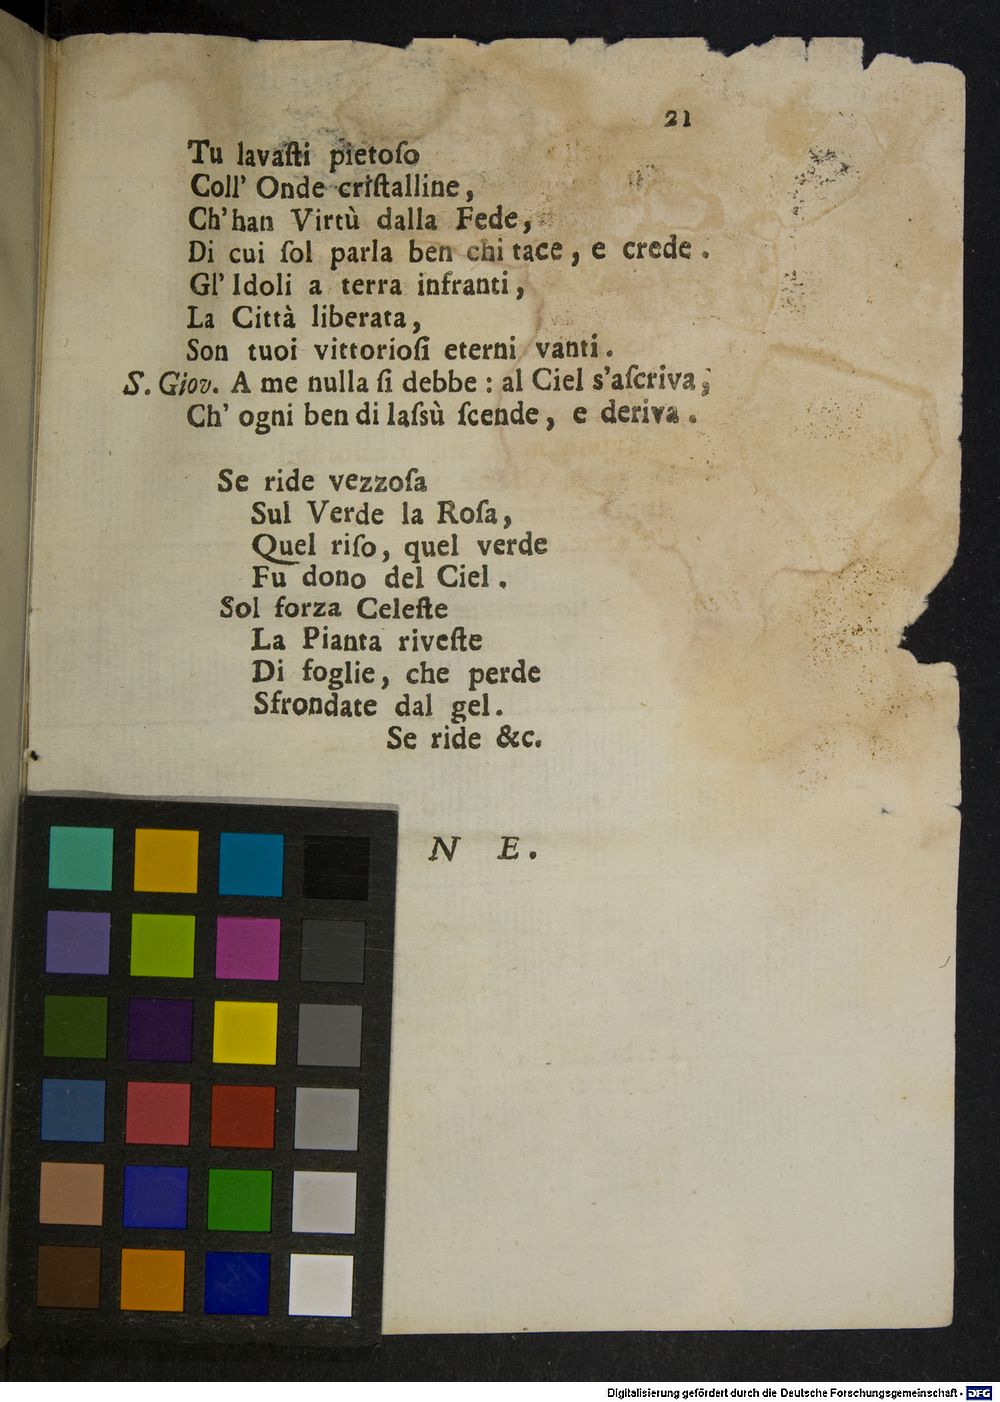 21
Tu lavaſti pietoſo
Coll' Onde criſtalline,
Ch'han Virtù dalla Fede,
Di cui ſol parla ben chi tace, e crede.
Gl' Idoli a terra infranti,
La Città liberata,
Son tuoi vittorioſi eterni vanti.
S. Giov. A me nulla ſi debbe: al Ciel s'aſcriva;
Ch' ogni ben di laſsù ſcende, e deriva.
Se ride vezzoſa
Sul Verde la Roſa,
Quel riſo, quel verde
Fu dono del Ciel.
Sol forza Celeſte
La Pianta riveſte
Di foglie, che perde
Sfrondate dal gel.
Se ride &c.
N E.
Digitalisierung gefördert durch die Deutsche Forschungsgemeinschaft - DFG